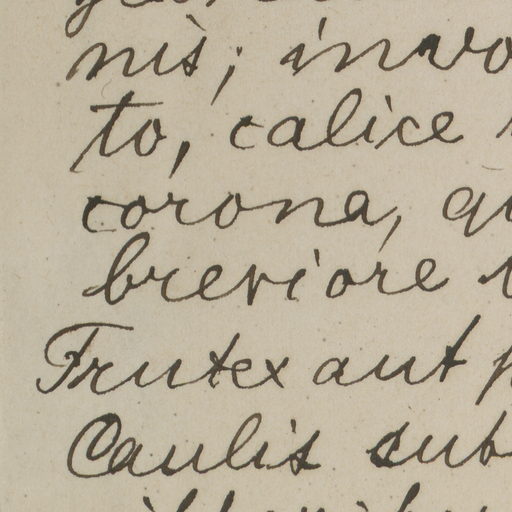 nis; invo
to, calice
corona, qu
breviore
Frutex aut p
Caulis sub